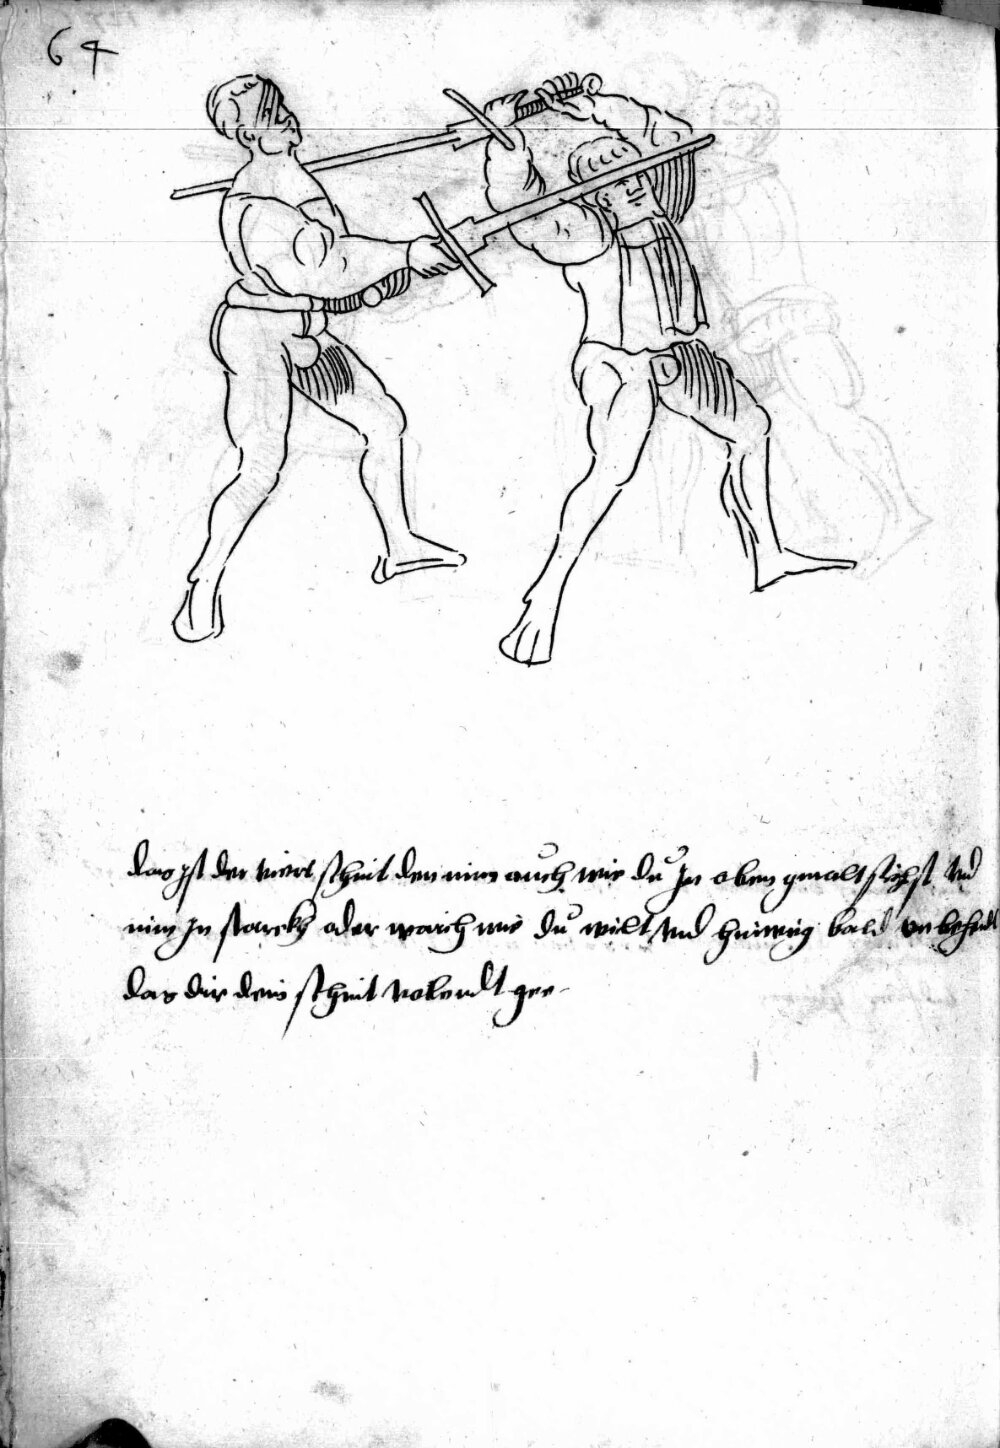 64
das ist der viert schnit den nim auch wie du Jn oben gmalt sichst vnd
nim Jn starck oder waich wie du wilt vnd hinweg bald vn behend
das dir dein schnit volendt gee